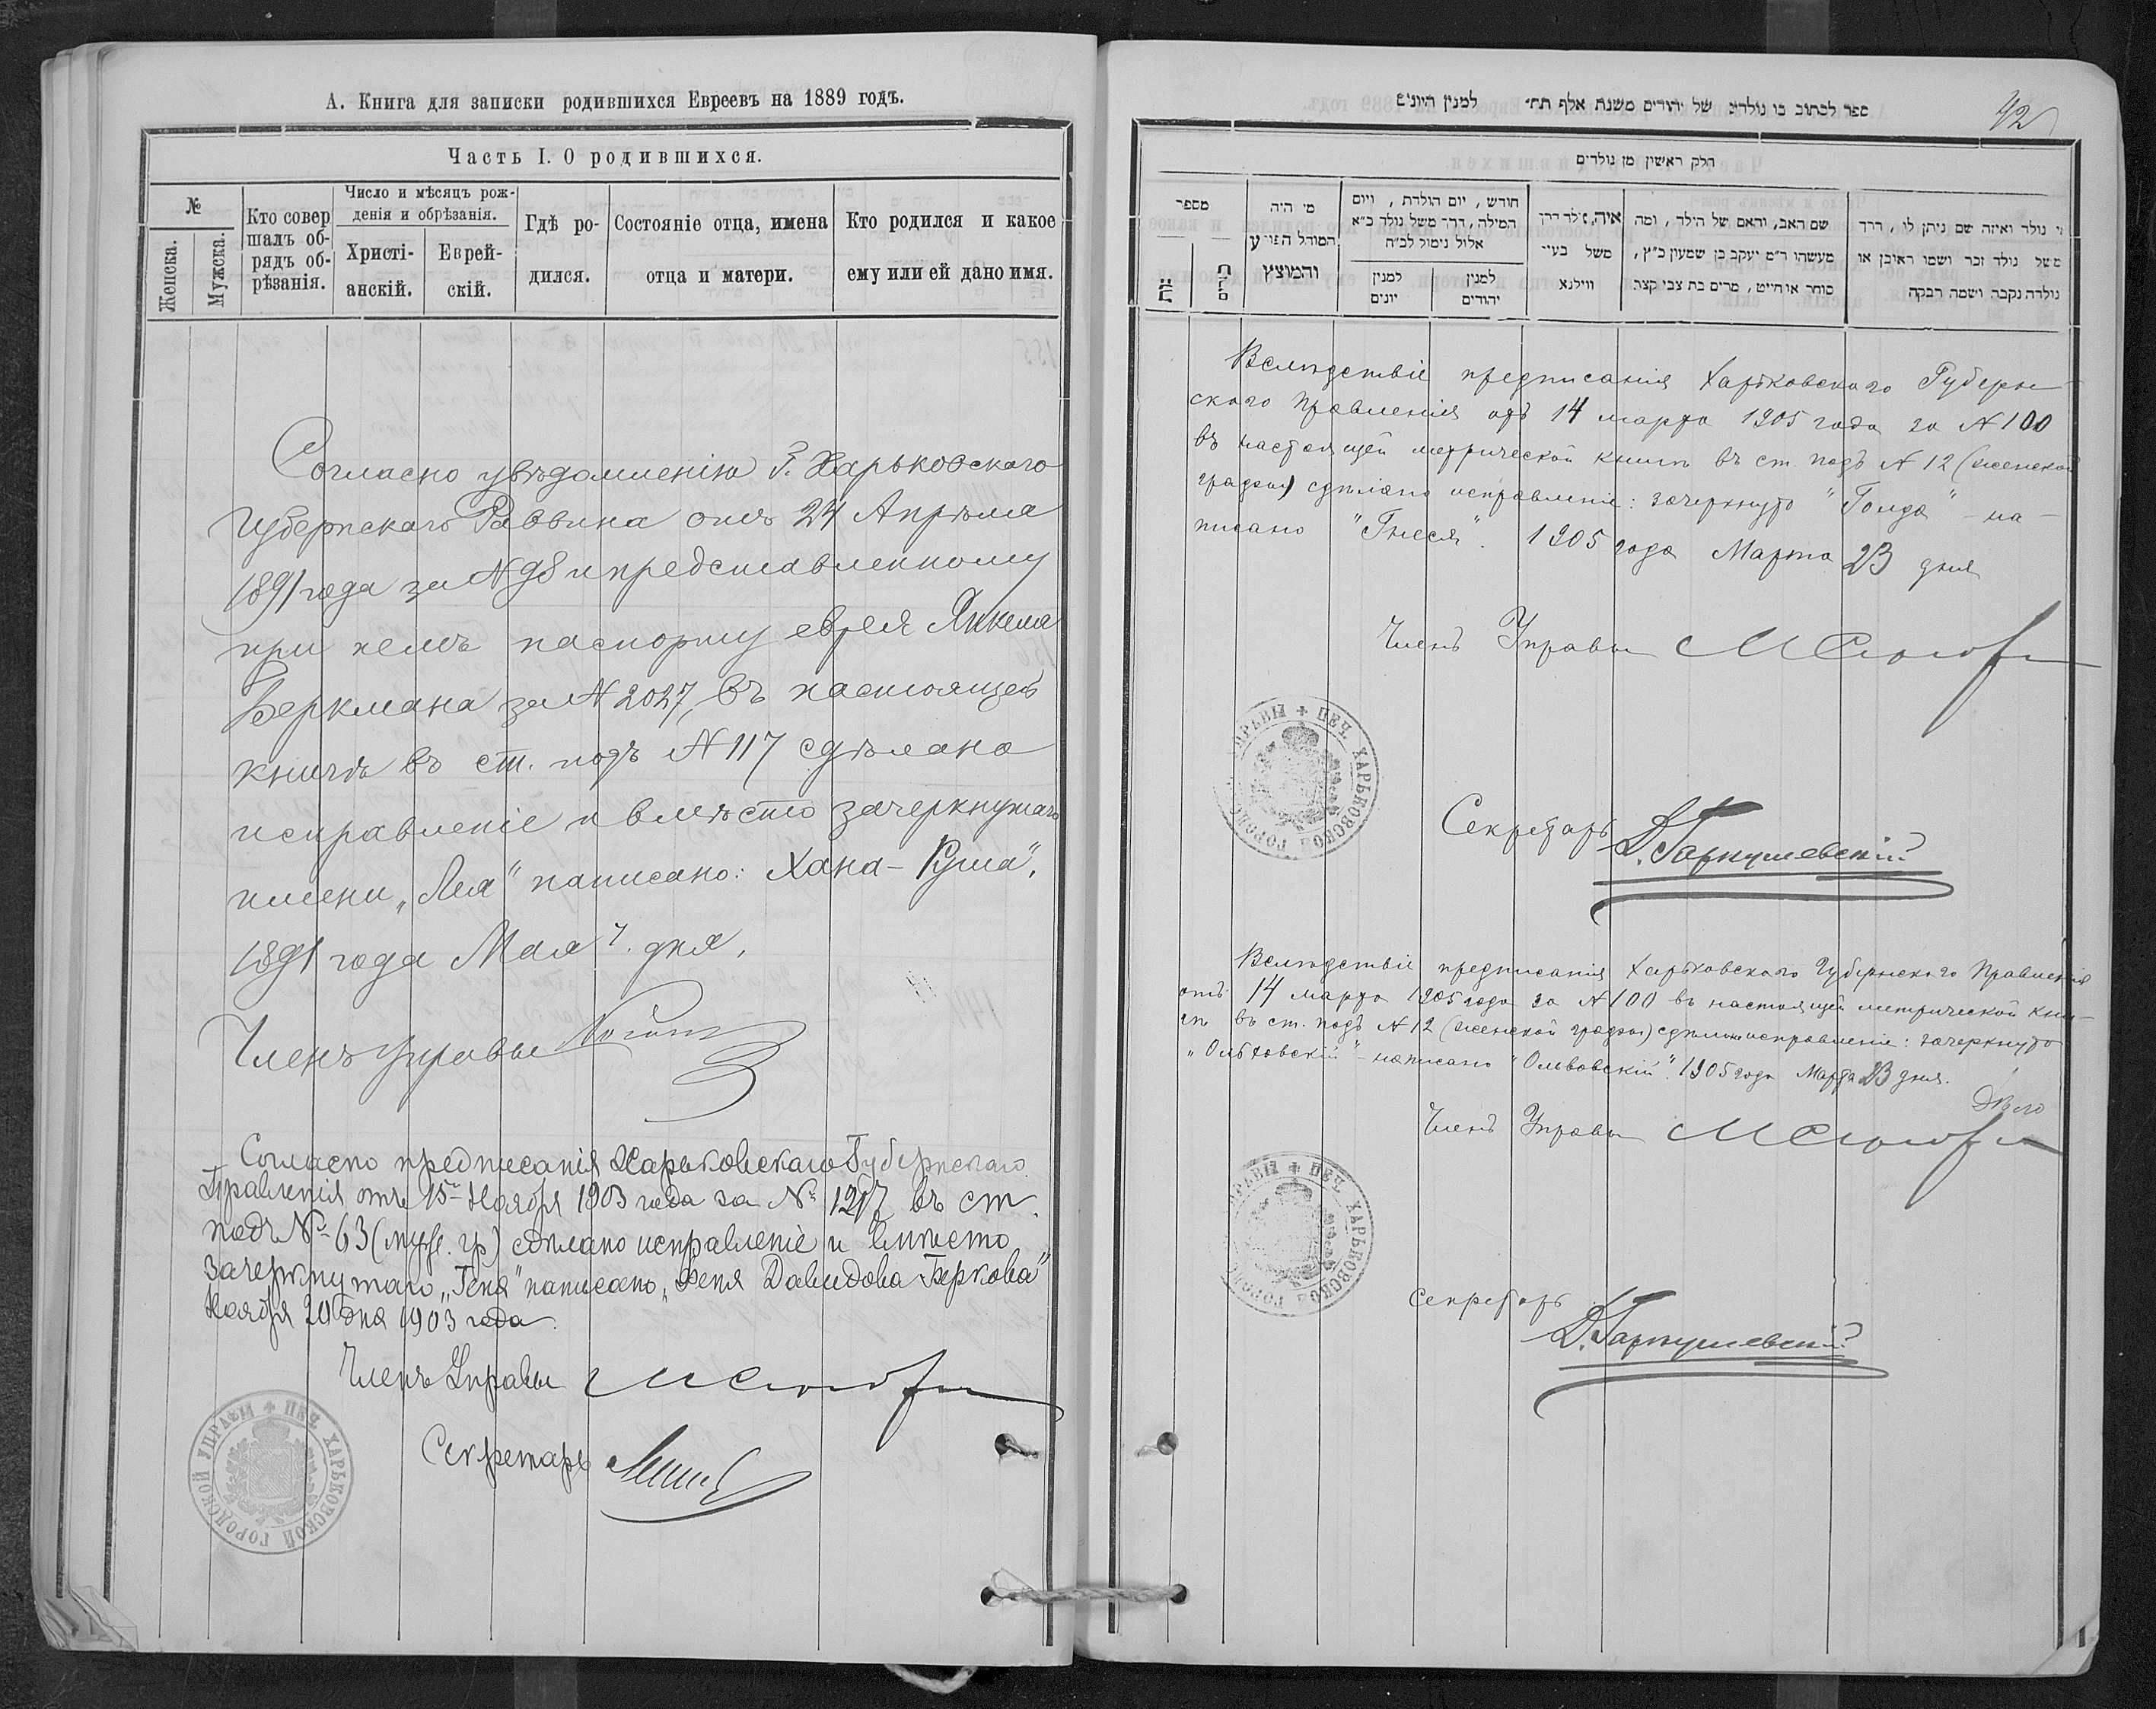 А. Книга для записки родившихся Евреевъ на 1889 годъ.
Часть I. О родившихся.
№
Женска.
Мужска.
Кто совершалъ обрядъ обрѣзанія.
Число и мѣсяцъ рожденія и обрѣзанія.
Христіанскій.
Еврейскій.
Гдѣ родился.
Состояніе отца, имена отца и матери.
Кто родился и какое ему или ей дано имя.
Согласно увѣдомленію Г. Харьковскаго
Губернскаго Раввина отъ 24 Апрѣля
1891 года за № 98 и представленному
при немъ паспорту еврея Янкеля
Беркмана за № 2027, въ настоящей
книгѣ въ ст. подъ № 117 сдѣлано
исправленіе и вмѣсто зачеркнутаго
имени „Лея" написано: Хана-Рума",
1891 года Мая 7. дня,
Членъ управы
Согласно предписанія Харьковскаго Губернскаго
Правленія отъ 15го Ноября 1903 года за № 1217 въ ст.
подъ № 63 (муж. гр) сдѣлано исправленіе и вмѣсто
зачеркнутаго „Геня" написано „Феня Давидова Беркова"
Ноября 20 дня 1903 года.
Членъ Управы
Секретарь
ПЕЧ. ХАРЬКОВСКОЙ ГОРОДСКОЙ УПРАВЫ
42
ספר לכתוב בו נולדים של יהודים משנת אלף תת׳ למנין היונים
חלק ראשון מן נולדים
מספר
מי היה המוהל הפורע והמוצץ
חודש, יום הולדת, ויום המילה, דרך משל נולד כ״א אלול נימול לכ״ח
למנין יונים
למנין יהודים
איה נולד דרך משל בעיר ווילנא
שם האב, והאם של הילד, ומה מעשהו ר״מ יעקב בן שמעון כ״ץ, סוחר או חייט, מרים בת צבי קצב
מי נולד ואיזה שם ניתן לו, דרך משל נולד זכר ושמו ראובן או נולדה נקבה ושמה רבקה
Вслѣдствіе предписанія Харьковскаго Губерн-
скаго Правленія отъ 14 марта 1905 года за № 100
въ настоящей метрической книгѣ въ ст. подъ № 12 (женской
графы) сдѣлано исправленіе: зачеркнуто "Голда" - на-
писано "Гнеся". 1905 года Марта 23 дня
Членъ Управы
ПЕЧ. ХАРЬКОВСКОЙ ГОРОДСКОЙ УПРАВЫ
Секретарь
Вслѣдствіе предписанія Харьковскаго Губернскаго Правленія
отъ 14 марта 1905 года за № 100 въ настоящей метрической кни-
гѣ въ ст. подъ № 12 (женской графы) сдѣлано исправленіе: зачеркнуто
"Ольховскій" - написано "Ольвовскій". 1905 года Марта 23 дня.
Членъ Управы
ПЕЧ. ХАРЬКОВСКОЙ ГОРОДСКОЙ УПРАВЫ
Секретарь